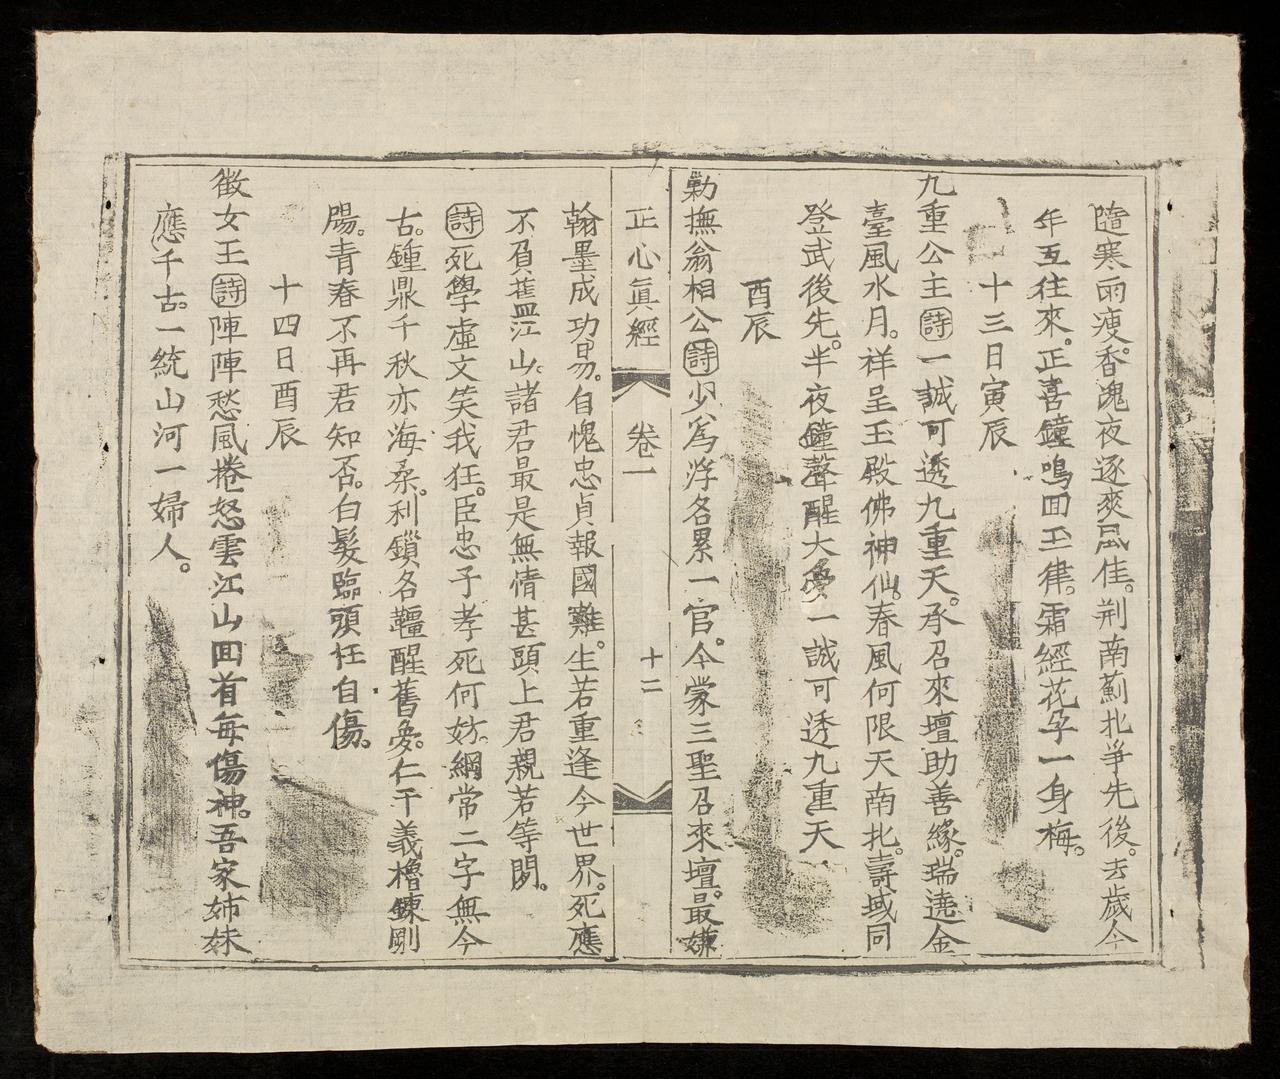 隨寒雨瘦。香魂夜逐爽風佳。荆南薊北爭先後。去歲今
年互往來。正喜鐘鳴囬玉律。霜經花孕一身梅。
十三日寅辰
九重公主詩一誠可透九重天。承召來壇助善緣。瑞遶金
臺風水月。祥呈王殿佛神仙。春風何限天南北。壽域同
登武後先。半夜鐘聲醒大夢一誠可透九重天
酉辰
勅撫翁相公詩少為浮名累一官。今蒙三聖召來壇。最嫌
正心眞經 卷一 十二
翰墨成功易。自愧忠貞報國難。生若重逢今世界。死應
不負舊江山。諸君最是無情甚頭上君親若等閒。
詩死學虛文笑我狂。臣忠子孝死何妨。綱常二字無今
古。鍾鼎千秋亦海桑。利鎖名韁醒舊夢。仁干義櫓鍊剛
腸。青春不再君知否。白髮臨頭任自傷。
十四日酉辰
徵女王詩陣陣愁風捲怒雲江山囬首每傷神。吾家姉妹
應千古。一統山河一婦人。